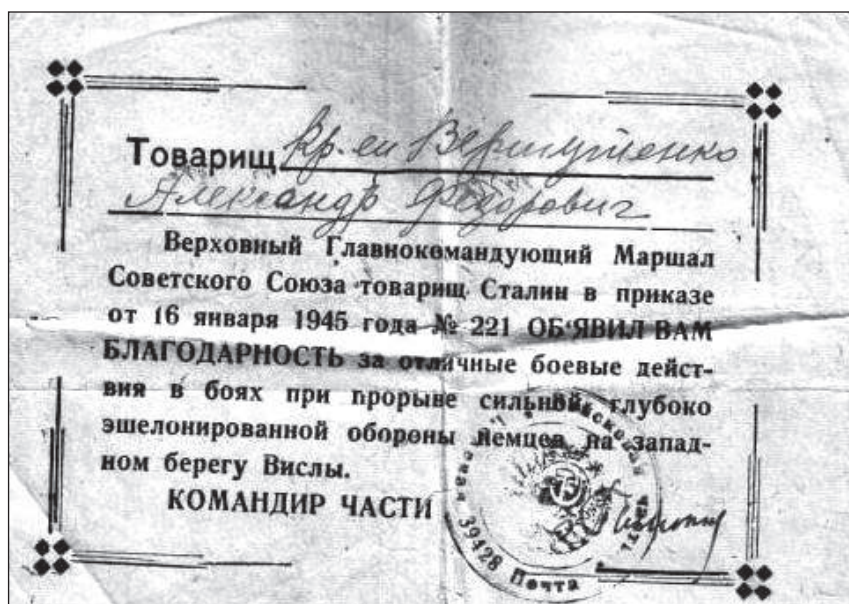 Товарищ кр-ец Вершутенко
Александр Федорович
Верховный Главнокомандующий Маршал
Советского Союза товарищ Сталин в приказе
от 16 января 1945 года № 221 ОБ'ЯВИЛ ВАМ
БЛАГОДАРНОСТЬ за отличные боевые дейст-
вия в боях при прорыве сильной глубоко
эшелонированной обороны немцев на запад-
ном берегу Вислы.
КОМАНДИР ЧАСТИ
Войсковая часть
39428 Почта